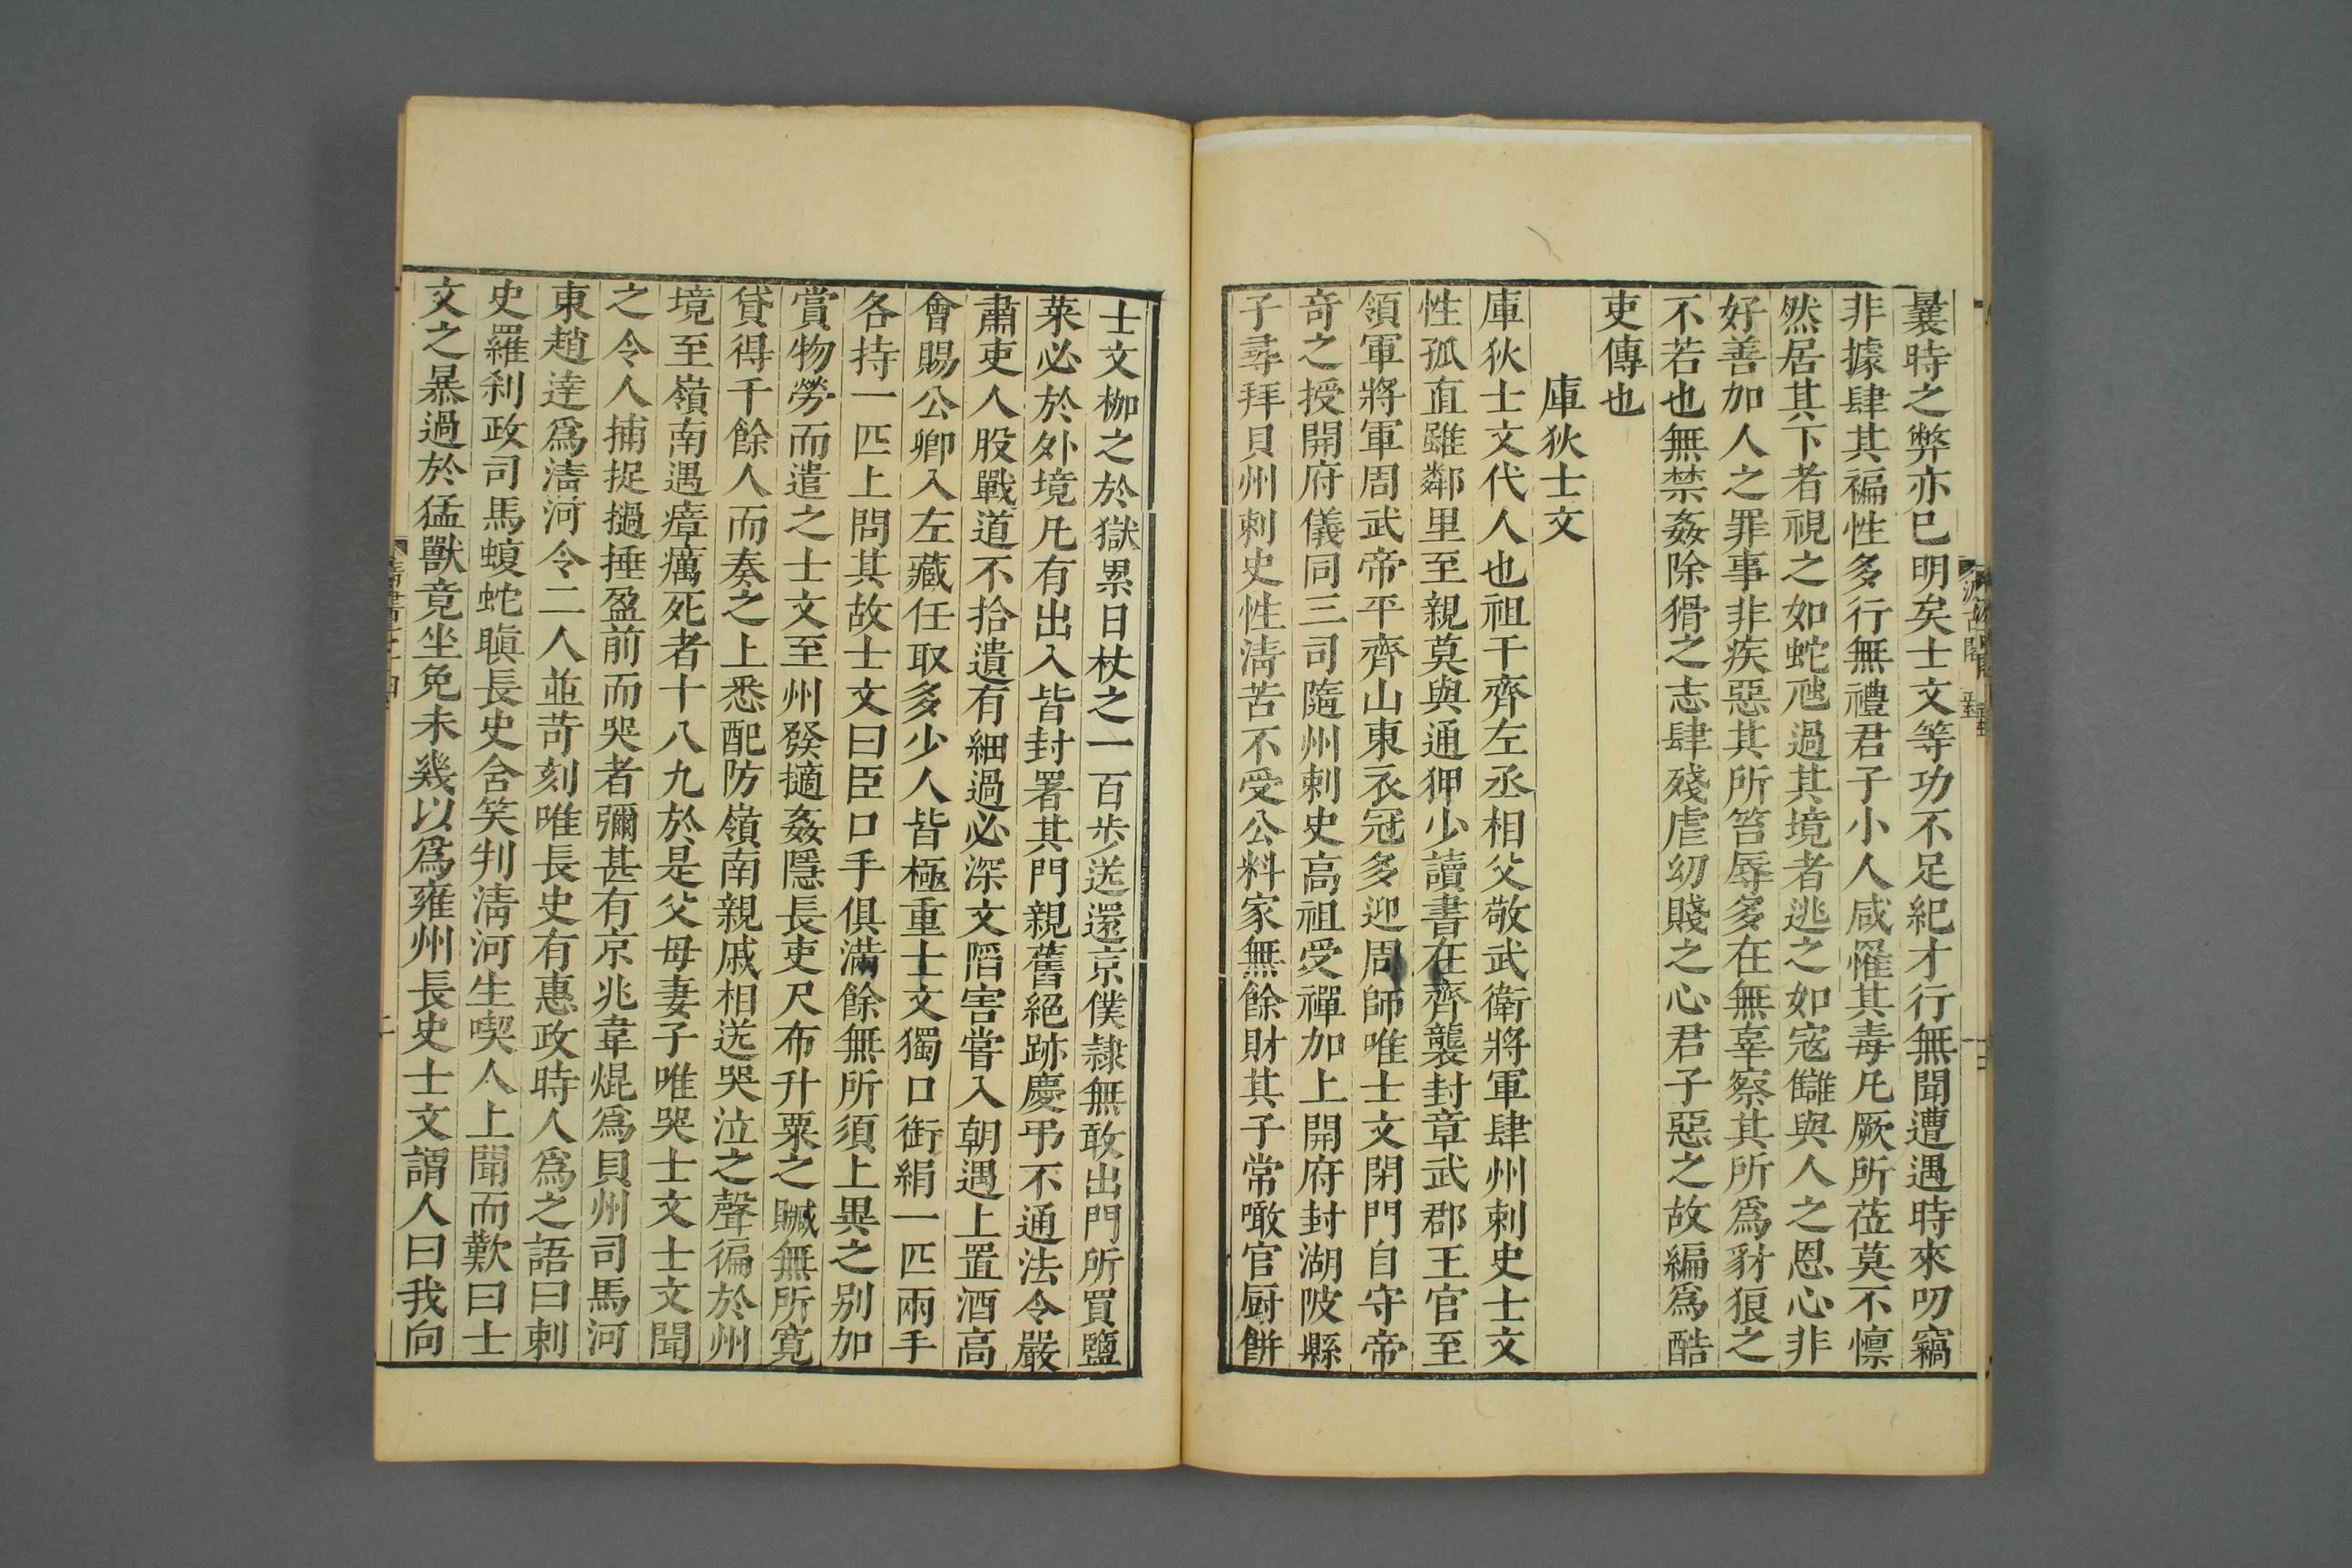 曩時之弊亦已明矣士文等功不足紀才行無聞遭遇時來叨竊
非據肆其褊性多行無禮君子小人咸罹其毒凡厥所莅莫不懍
然居其下者視之如蛇虺過其境者逃之如寇讎與人之恩心非
好善加人之罪事非疾惡其所笞辱多在無辜察其所爲豺狼之
不若也無禁姦除猾之志肆殘虐幼賤之心君子惡之故編爲酷
吏傳也
庫狄士文
庫狄士文代人也祖干齊左丞相父敬武衛將軍肆州刺史士文
性孤直雖鄰里至親莫與通狎少讀書在齊襲封章武郡王官至
領軍將軍周武帝平齊山東衣冠多迎周師唯士文閉門自守帝
奇之授開府儀同三司隨州刺史高祖受禪加上開府封湖陂縣
子尋拜貝州刺史性淸苦不受公料家無餘財其子常噉官厨餅
士文枷之於獄累日杖之一百步送還京僕隷無敢出門所買鹽
菜必於外境凡有出入皆封署其門親舊絕跡慶弔不通法令嚴
肅吏人股戰道不拾遺有細過必深文陷害嘗入朝遇上置酒高
會賜公卿入左藏任取多少人皆極重士文獨口銜絹一匹兩手
各持一匹上問其故士文曰臣口手俱滿餘無所須上異之別加
賞物勞而遣之士文至州發擿姦隱長吏尺布升粟之贓無所寛
貸得千餘人而奏之上悉配防嶺南親戚相送哭泣之聲徧於州
境至嶺南遇瘴癘死者十八九於是父母妻子唯哭士文士文聞
之令人捕捉撾捶盈前而哭者彌甚有京兆韋焜爲貝州司馬河
東趙達爲淸河令二人並苛刻唯長史有惠政時人爲之語曰刺
史羅刹政司馬蝮蛇瞋長史含笑判淸河生喫人上聞而歎曰士
文之暴過於猛獸竟坐免未幾以爲雍州長史士文謂人曰我向